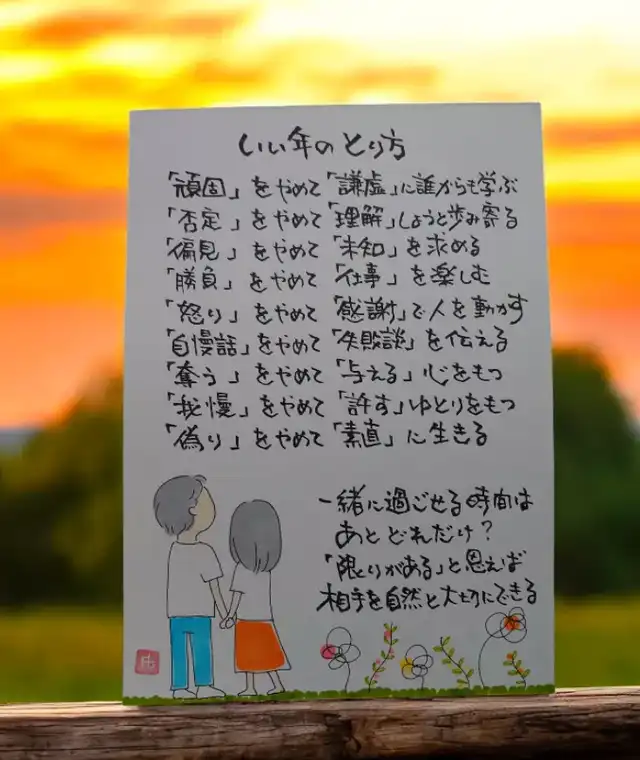 いい年のとり方
「頑固」をやめて「謙虚」に誰からも学ぶ
「否定」をやめて「理解」しようと歩み寄る
「偏見」をやめて「未知」を求める
「勝負」をやめて「仕事」を楽しむ
「怒り」をやめて「感謝」で人を動かす
「自慢話」をやめて「失敗談」を伝える
「奪う」をやめて「与える」心をもつ
「我慢」をやめて「許す」ゆとりをもつ
「偽り」をやめて「素直」に生きる
一緒に過ごせる時間は
あとどれだけ?
「限りがある」と思えば
相手を自然と大切にできる